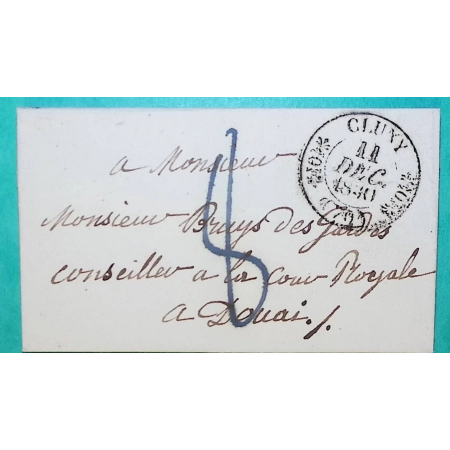 CLUNY
11
DEC.
1830
(70)
8
a Monsieur
Monsieur Bruys des Gardes
conseiller a la Cour Royale
a Douai